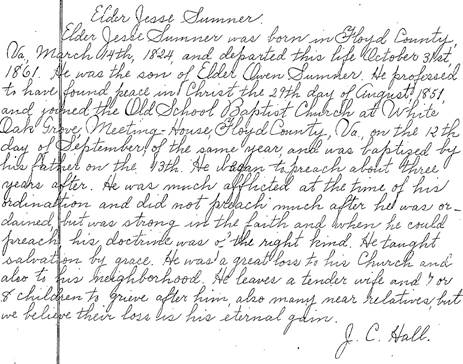 Elder Jesse Sumner.
Elder Jesse Sumner was born in Floyd County,
Va, March 14th, 1824, and departed this life October 31st
1861. He was the son of Elder Owen Sumner. He professed
to have found peace in Christ the 29th day of August 1851,
and joined the Old School Baptist Church at White
Oak Grove, Meeting-House, Floyd County, Va, on the 12th
day of September of the same year, and was baptised by
his father on the 13th. He began to preach about three
years after. He was much afflicted at the time of his
ordination and did not preach much after he was or-
dained, but was strong in the faith and when he could
preach, his doctrine was of the right kind. He taught
salvation by grace. He was a great loss to his Church and
also to his neighborhood. He leaves a tender wife and 7 or
8 children to grieve after him, also many near relatives, but
we believe their loss is his eternal gain.
J. C. Hall.